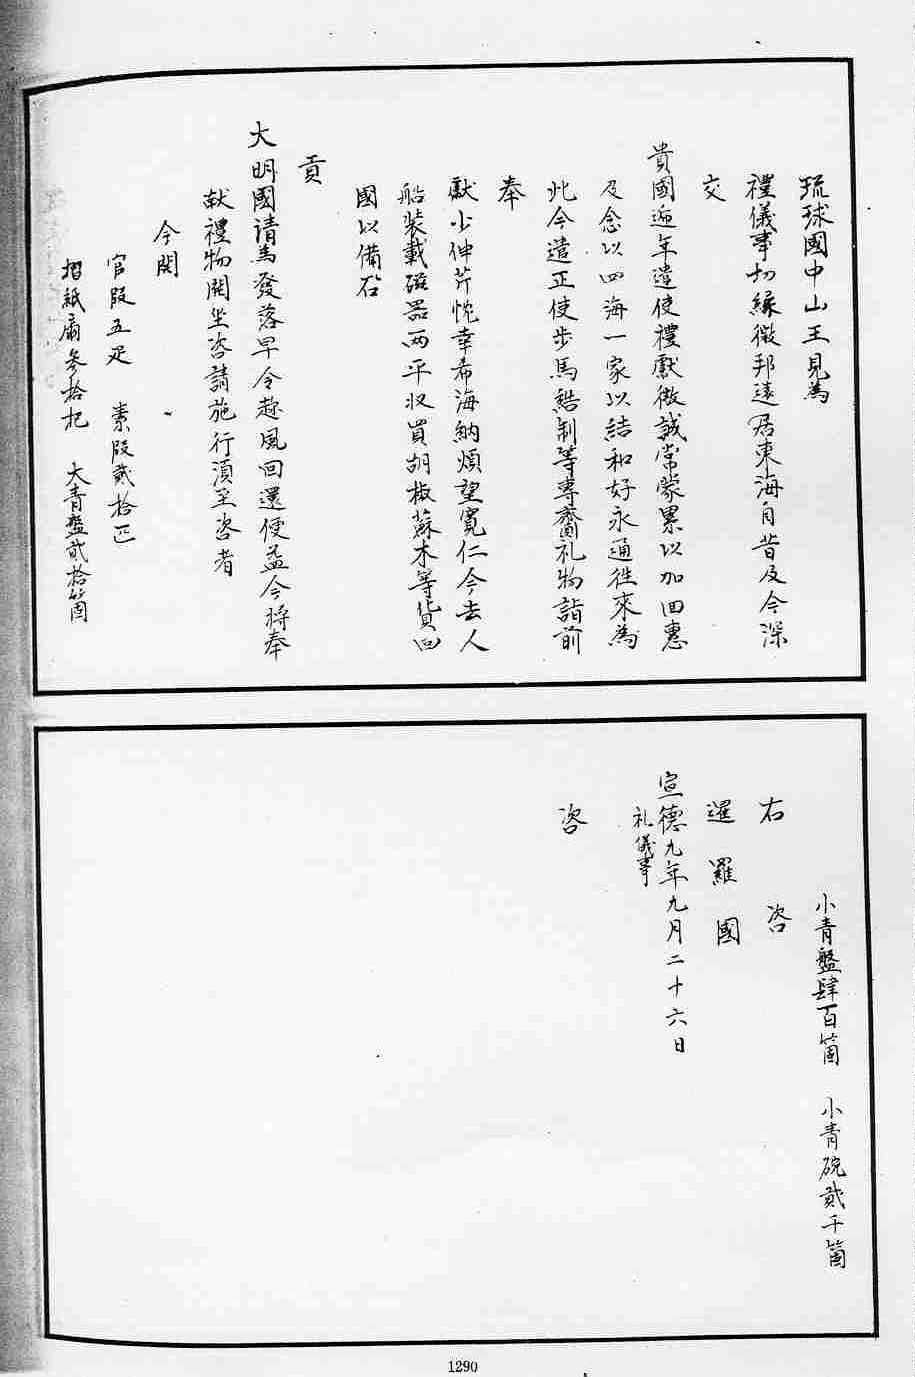 琉球國中山王見為
禮儀事切緣微邦遠居東海自昔及今深
交
貴國逓年遣使禮獻微誠常蒙累以加回惠
及念以四海一家以結和好永通徃來為
此今遣正使步馬結制等專齎礼物詣前
奉
獻少伸芹忱幸希海納煩望寬仁今去人
船装載磁器两平収買胡椒蘇木等貨回
國以備
貢
大明國请為發落早令趂風回還便益今將奉
献禮物開坐咨請施行湏至咨者
今開
官段五疋 素段貳拾匹
摺紙扇參拾把 大青盤貳拾箇
小青盤肆百箇 小青碗貳千箇
右咨
暹羅國
宣德九年九月二十六日
礼儀事
咨
1290